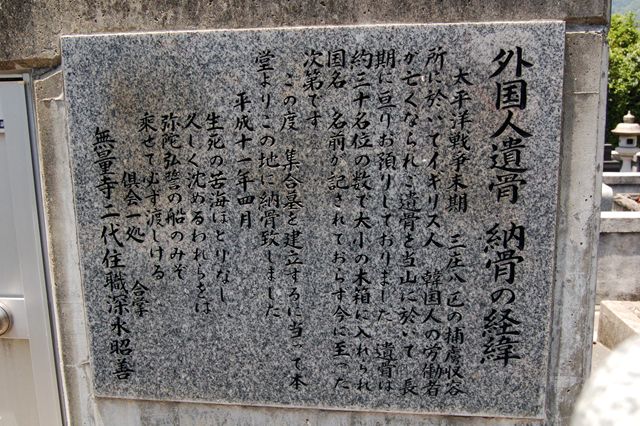 外国人遺骨 納骨の経緯
太平洋戦争末期 三庄八区の捕虜収容
所に於いてイギリス人 韓国人の労働者
が亡くなられご遺骨を当山に於いて 長
期に亘りお預りしておりました 遺骨は
約三十名位の数で大小の木箱に入れられ
国名 名前が記されておらず今に至った
次第です
この度 集合墓を建立するに当って本
堂よりこの地に納骨致しました
平成十一年四月
生死の苦海ほとりなし
久しく沈めるわれらをば
弥陀弘誓の船のみぞ
乗せて必ず渡しける
俱会一処 合掌
無量寺二代住職深水昭善